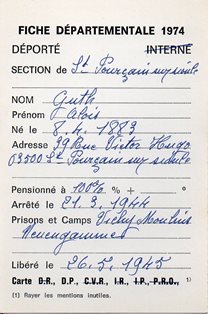 FICHE DÉPARTEMENTALE 1974
DÉPORTÉ INTERNÉ
SECTION de St Pourçain sur sioule
NOM Guth
Prénom Aloïs
Né le 8. 4. 1883
Adresse 39 Rue Victor Hugo
03500 St Pourçain sur sioule
Pensionné à 100% % + °
Arrêté le 21. 3. 1944
Prisons et Camps Vichy Moulins
Neuengamme
Libéré le 26. 5. 1945
Carte D.R., D.P., C.V.R., I.R., I.P., P.R.O., 1)
(1) Rayer les mentions inutiles.